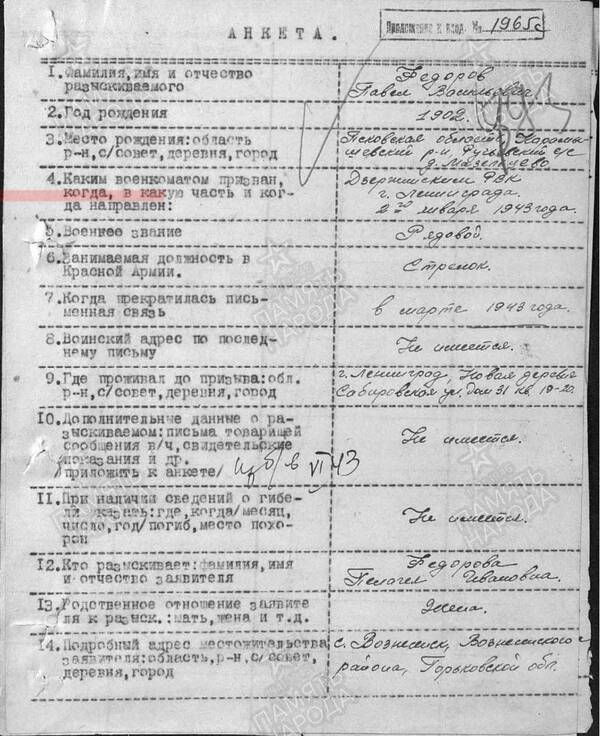 Приложение к вход. № 1965с
АНКЕТА.
1.Фамилия,имя и отчество разыскиваемого
Федоров
Павел Васильевич
2.Год рождения
1902.
3.Место рождения:область
р-н,с/совет,деревня,город
Псковская область, Карамышевский р-н
с/с
4.Каким военкоматом призван,
когда, в какую часть и когда направлен:
Дзержинским РВК
г. Ленинграда.
2го января 1943 года.
5.Военнее звание
Рядовой.
6.Занимаемая должность в
Красной Армии.
Стрелок.
7.Когда прекратилась письменная связь
в марте 1943 года.
8.Воинский адрес по последнему письму
Не имеется.
9.Где проживал до призыва:обл.
р-н,с/совет,деревня,город
г. Ленинград, Новая деревня
Сабировская ул. дом 31 кв. 19-20.
10.Дополнительные данные о разыскиваемом:письма товарищей
сообщения в/ч,свидетельские
показания и др.
приложить к анкете/
б/в VI 43
Не имеется.
11.При наличии сведений о гибели указать:где,когда/месяц,
число,год/погиб,место похорон
Не имеется.
12.Кто разыскивает:фамилия,имя
и отчество заявителя
Федорова
Пелагея Ивановна.
13.Родственное отношение заявителя к разыск.:мать,жена и т.д.
Жена.
14.Подробный адрес местожительства
заявителя:область,р-н,с/совет,
деревня,город
с. Вознесенск, Вознесенского
района, Горьковской обл.
ПАМЯТЬ НАРОДА